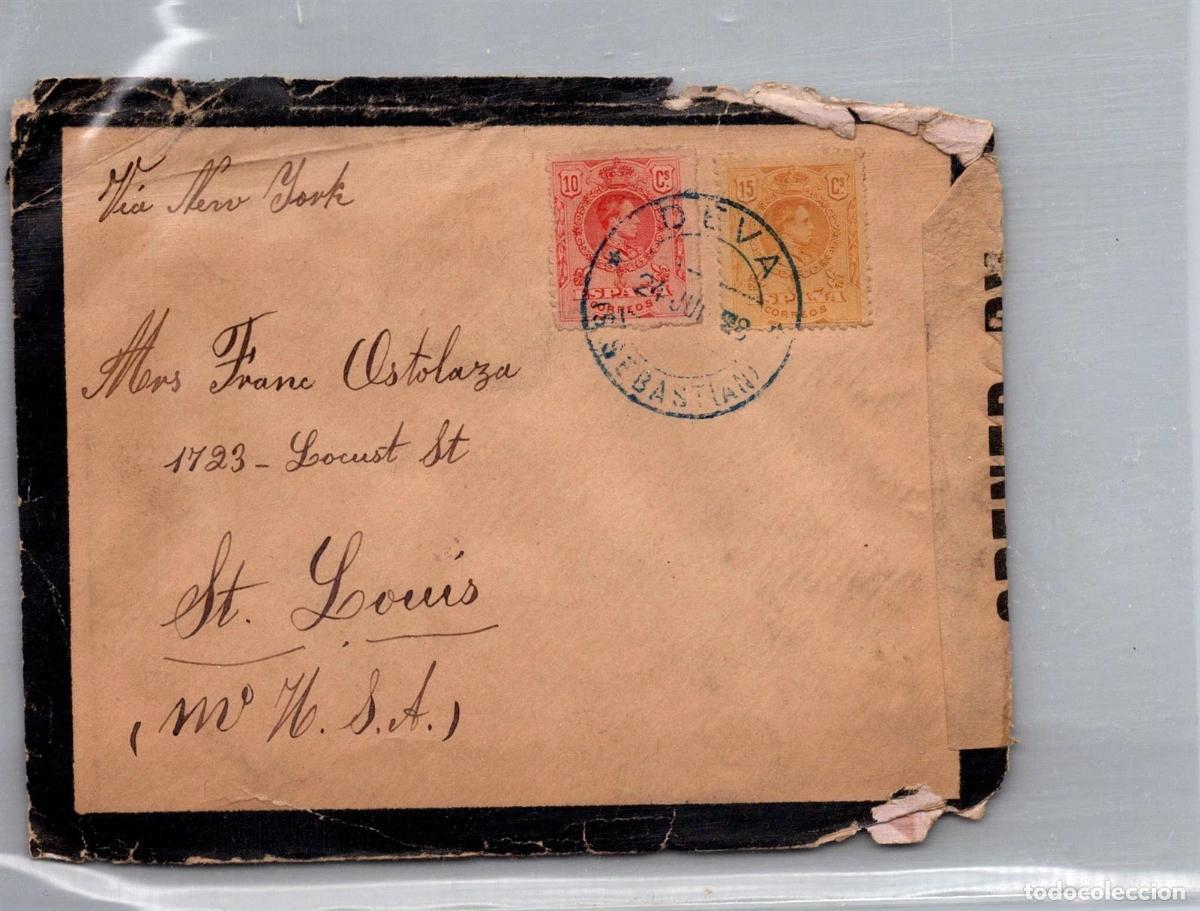 Via New York
10 Cs.
ESPAÑA
CORREOS
15 Cs.
ESPAÑA
CORREOS
DEVA
24 JUL
(S. SEBASTIAN)
Mrs Franc Ostolaza
1723 - Locust St
St. Louis
(Mo U.S.A.)
OPENED BY
todocoleccion